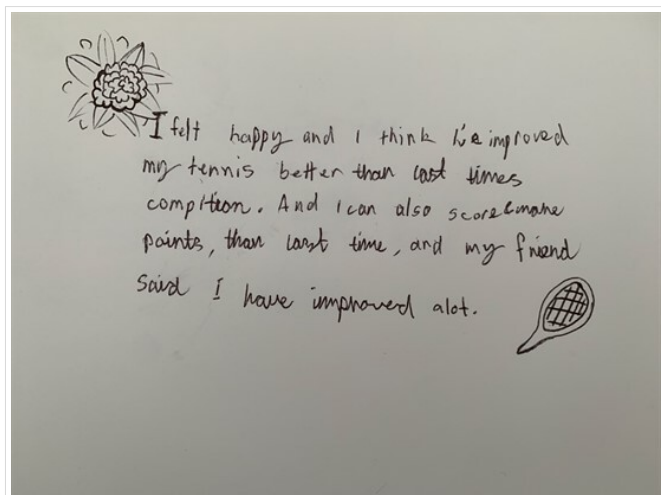 I felt happy and I think I've improved
my tennis better than last times
compition. And I can also score more
points, than last time, and my friend
said I have improved alot.